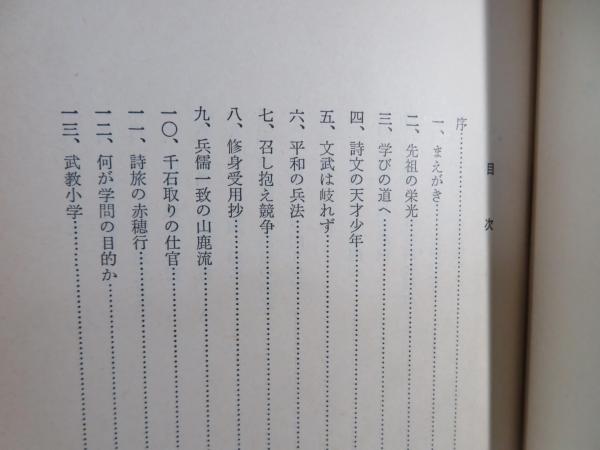 目次
序……………………
一、まえがき……………………
二、先祖の栄光……………………
三、学びの道へ……………………
四、詩文の天才少年……………………
五、文武は岐れず……………………
六、平和の兵法……………………
七、召し抱え競争……………………
八、修身受用抄……………………
九、兵儒一致の山鹿流……………………
一〇、千石取りの仕官……………………
一一、詩旅の赤穂行……………………
一二、何が学問の目的か……………………
一三、武教小学……………………